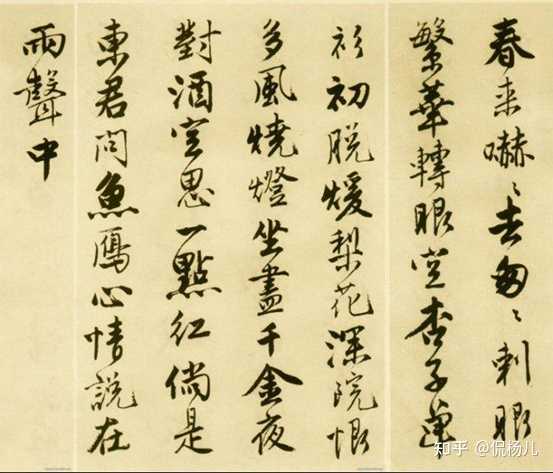 春来嚇〻去匆〻刺眼
繁華轉眼空杏子單
衫初脫煖梨花深院恨
多風燒燈坐盡千金夜
對酒空思一點紅倘是
東君問魚鴈心情說在
雨聲中
知乎 @侃杨儿